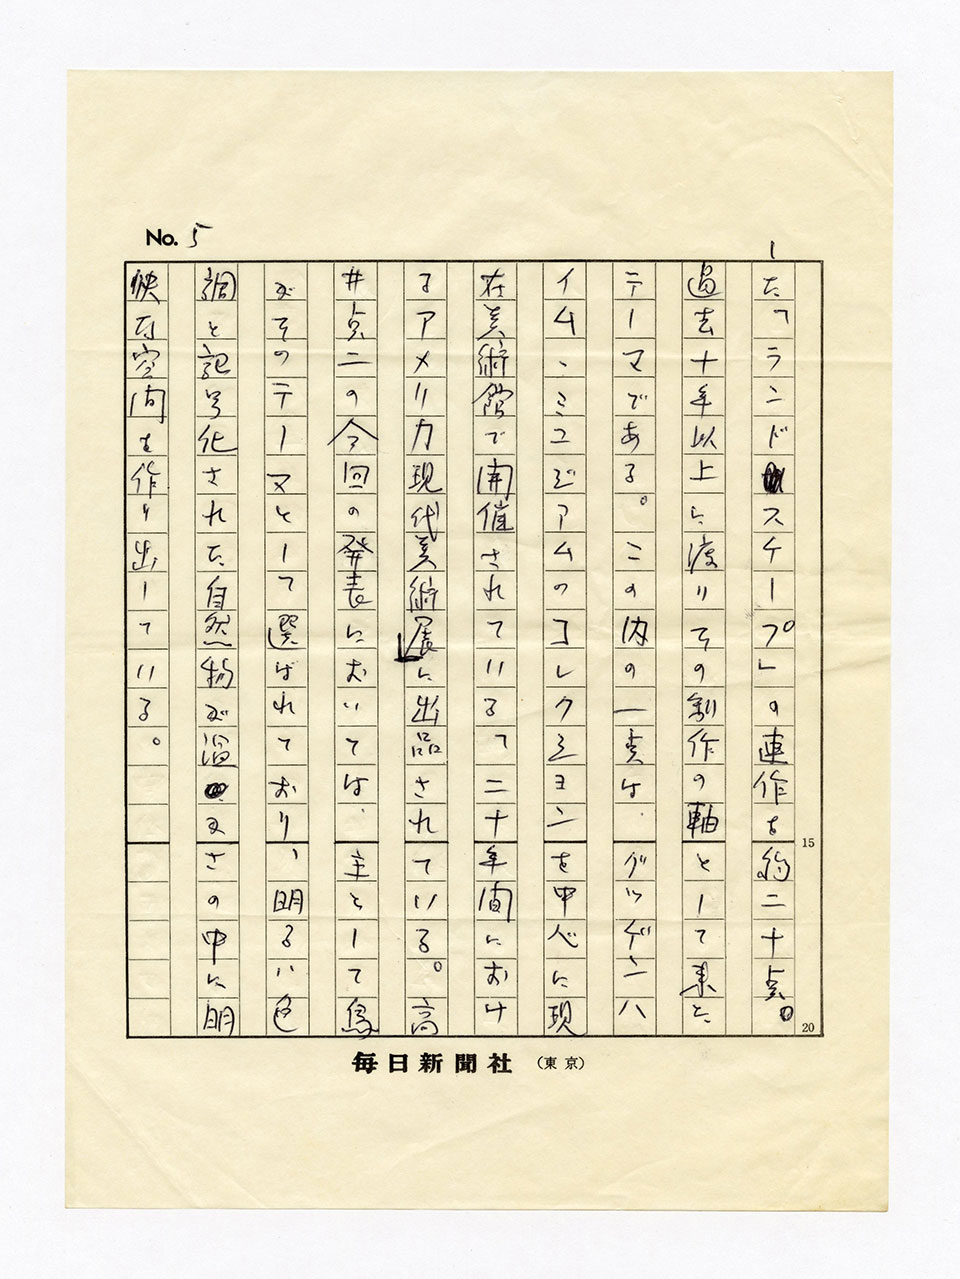 No. 5
した「ランドスケープ」の連作を約二十点。
過去十年以上に渡りその制作の軸として来た
テーマである。この内の一点は、グッゲンハ
イム、ミユジアムのコレクシヨンを中心に現
在美術館で開催されている「二十年間におけ
るアメリカ現代美術展」に出品されている。高
井貞二の今回の発表においては、主として鳥
がそのテーマとして選ばれており、明るい色
調と記号化された自然物が温かさの中に明
快な空間を作り出している。
15
20
毎日新聞社(東京)